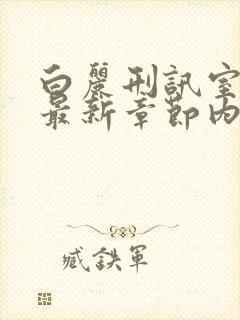 白麗刑訊室
最新章節內
臧鉄軍